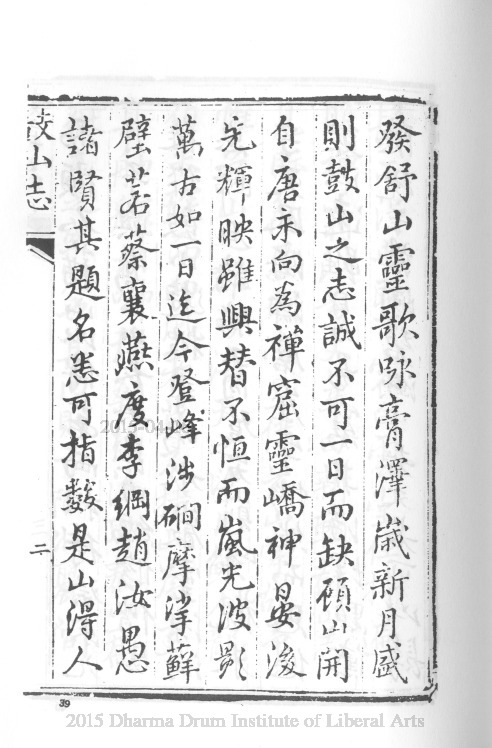 發舒山靈歌咏膏澤歲新月盛
則鼓山之志誠不可一日而缺顧山開
自唐來向為禪窟靈嶠神晏後
先輝映雖興替不恒而嵐光波影
萬古如一日迄今登峰涉磵摩挲蘚
壁若蔡襄燕度李綱趙汝愚
諸賢其題名悉可指數是山得人
鼓山志
二
39
2015 Dharma Drum Institute of Liberal Arts